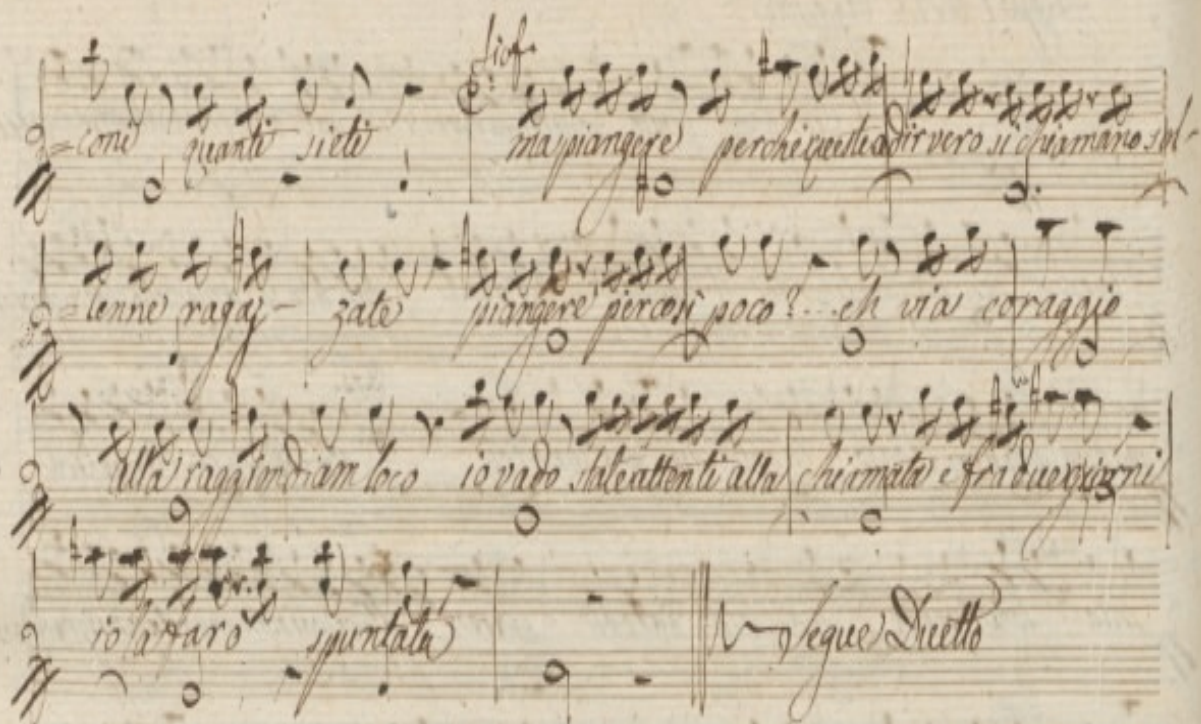 Giof.
=coni quanti siete ma piangere perche queste a dir vero si chiamano sol-
=lenne ragaz- zate piangere per cosi poco?... eh via coraggio
alla raggiam loco io vado state attenti alla chiamata e fra due giorni
io la farò spuntata Segue Duetto